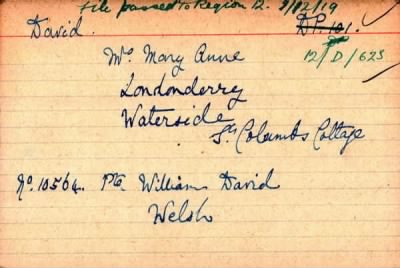 File passed to Region 12. 9/12/19
David. DP. 101.
12/D/623
Mrs. Mary Anne
Londonderry
Waterside
St Columbs Cottage
No. 10564. Pte. William David
Welsh